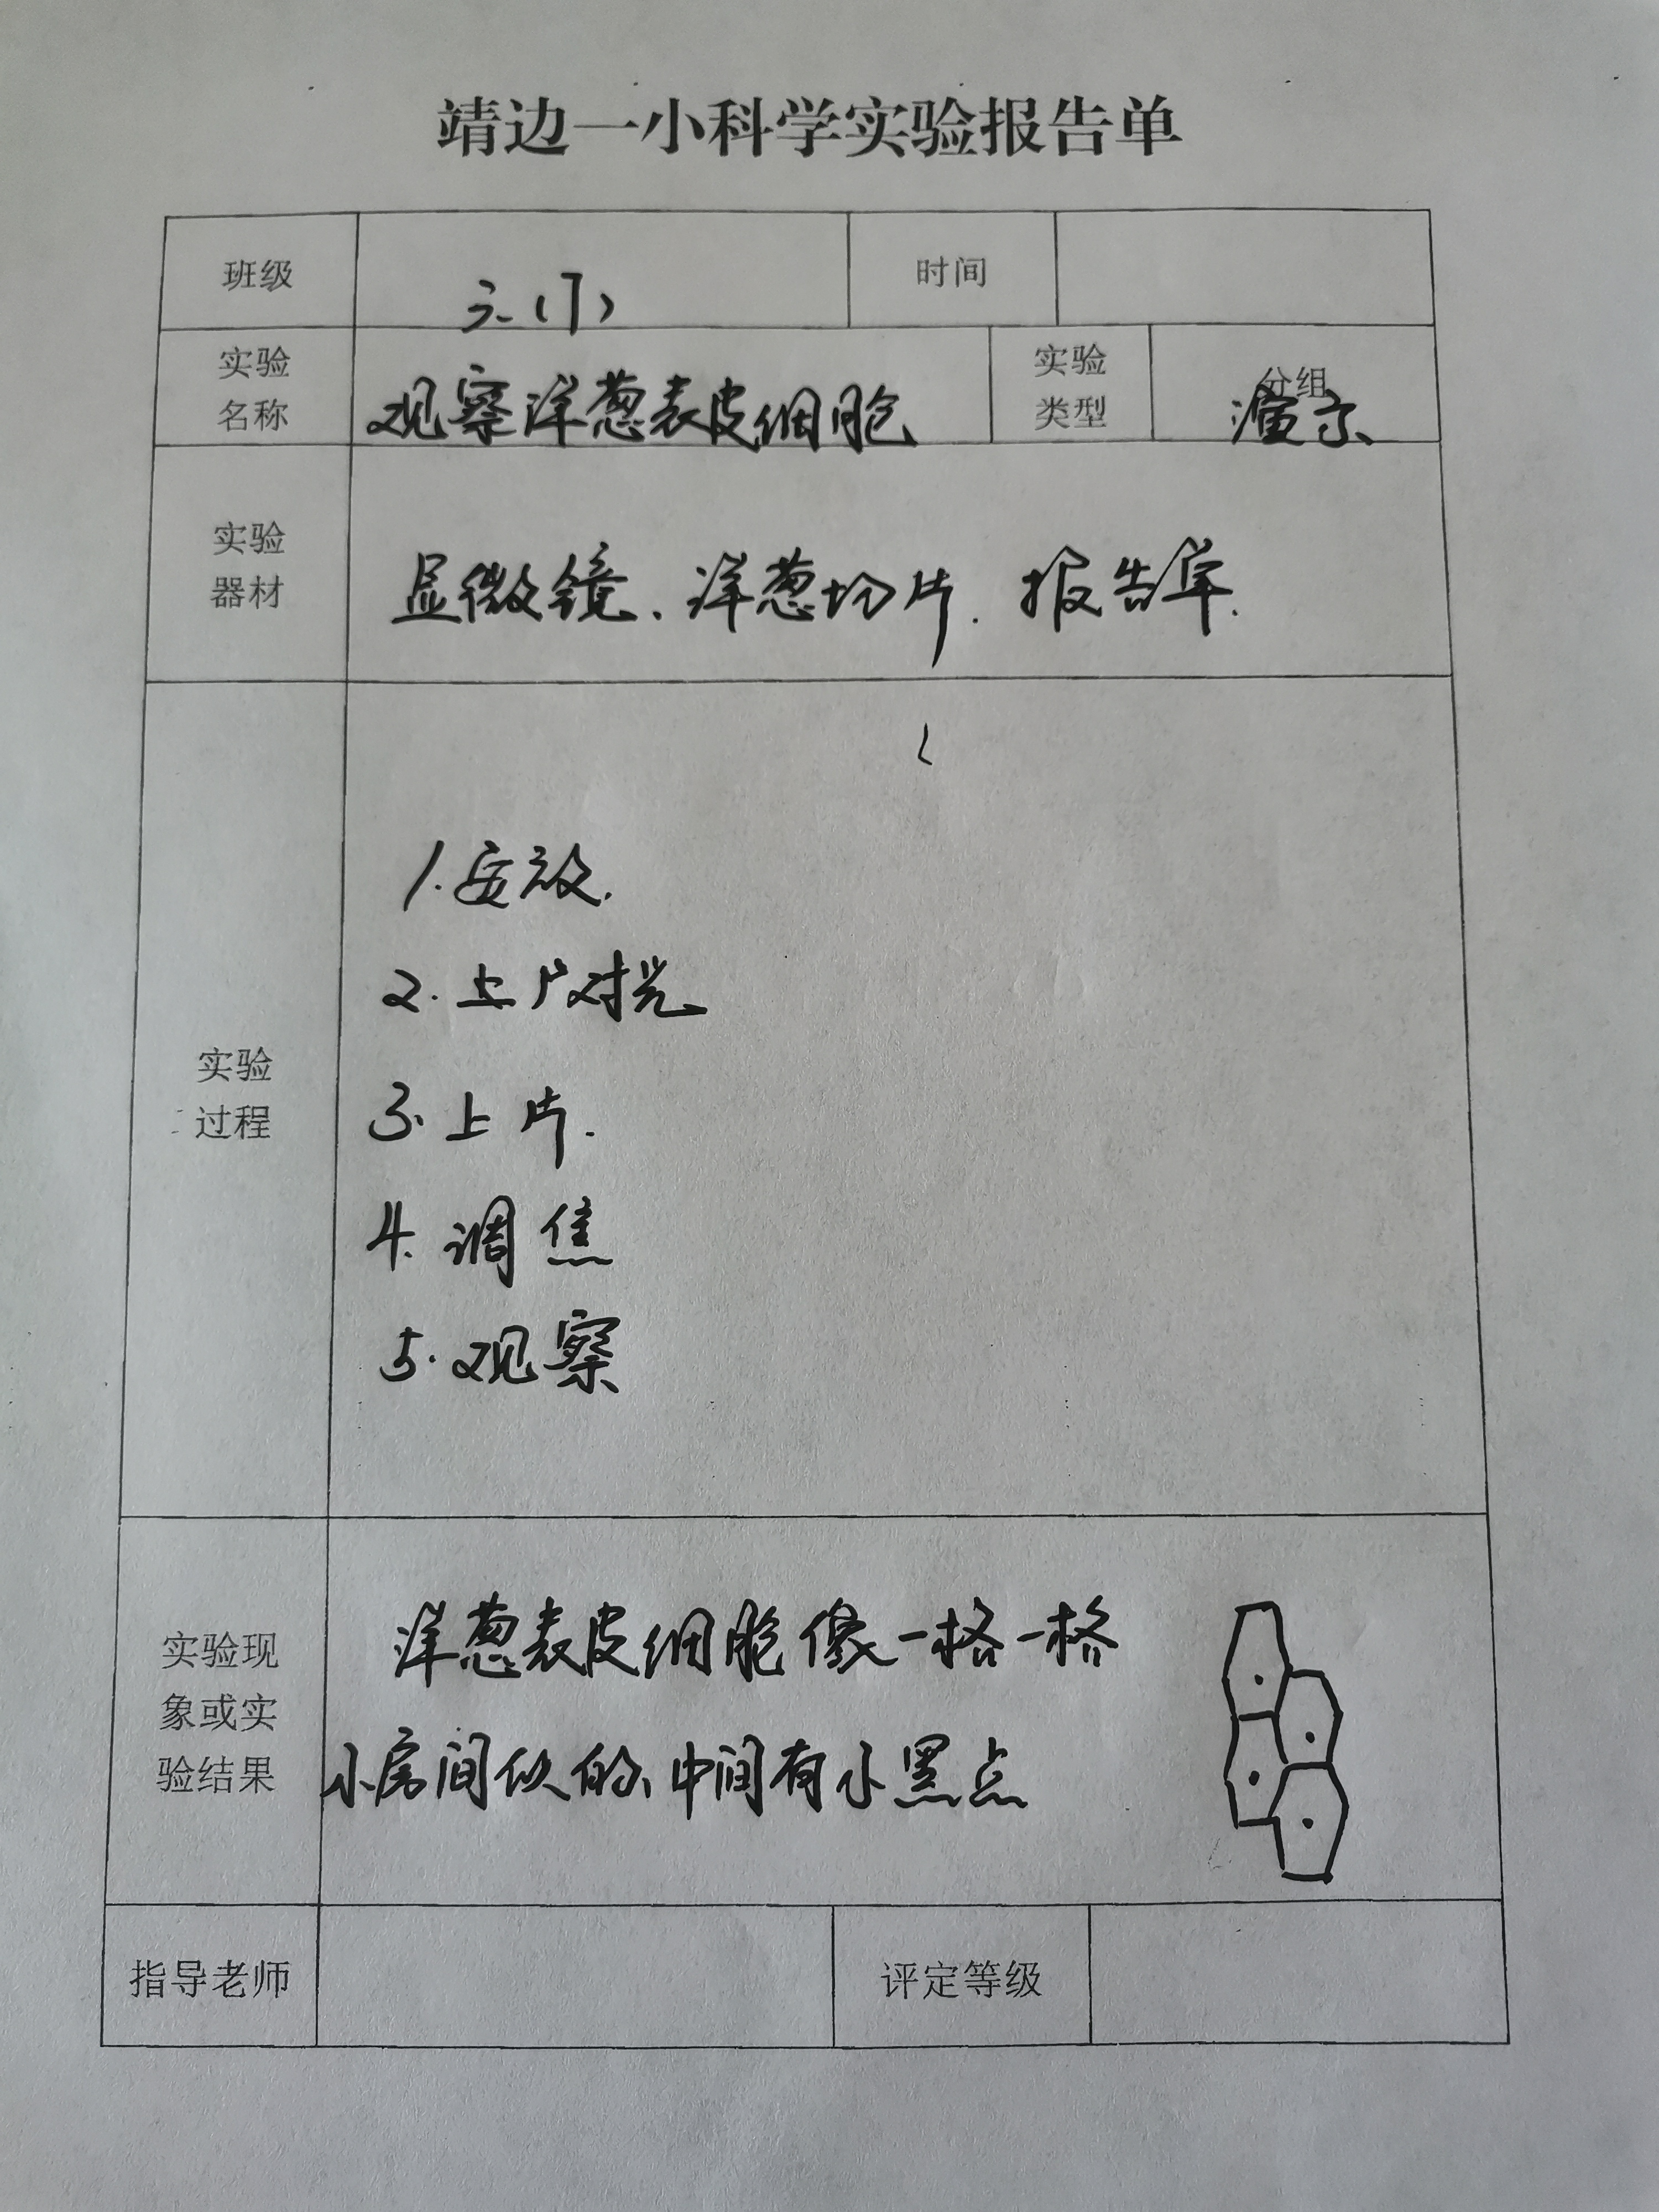 靖边一小科学实验报告单
班级
时间
实验
名称
观察洋葱表皮细胞
实验
类型
分组
演示
实验
器材
显微镜、洋葱切片、报告单.
实验
过程
1.安放.
2.上片对光
3.上片.
4.调焦
5.观察
实验现
象或实
验结果
洋葱表皮细胞像一格一格
小房间似的、中间有小黑点
指导老师
评定等级